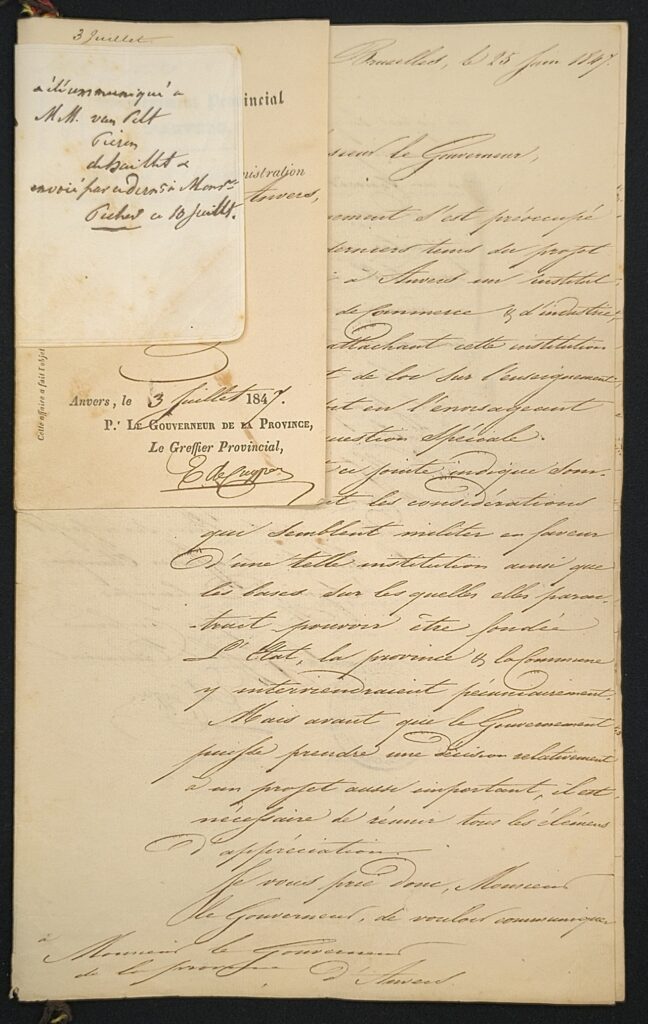 3 Juillet
a été communiqué à
M.M. van Pelt
Pieren
de baillet &
envoié par ce dernier à Monsr
Picher ce 10 Juillet.
incial
nistration
Anvers,
Cette affaire a fait l'objet
Anvers, le 3 Juillet 1847.
P.r Le Gouverneur de la Province,
Le Greffier Provincial,
E. de Cuyper
Bruxelles, le 25 Juin 1847.
sieur le Gouverneur,
ement s'est préoccupé
derniers tems du projet
à Anvers un institut
de Commerce & d'industrie,
attachant cette institution
t de loi sur l'enseignement
oit en l'envisageant
question spéciale.
ce jointe indique som-
t les considérations
qui semblent militer en faveur
d'une telle institution ainsi que
les bases sur les quelles elle parai-
trait pouvoir être fondée
L'Etat, la province & la Commune
y interviendraient pécuniairement.
Mais avant que le Gouvernement
puisse prendre une décision relativement
à un projet aussi important, il est
nécessaire de réunir tous les élémens
d'appréciation.
Je vous prie donc, Monsieur
le Gouverneur, de vouloir communiquer
à
Monsieur le Gouverneur
de la province d'Anvers